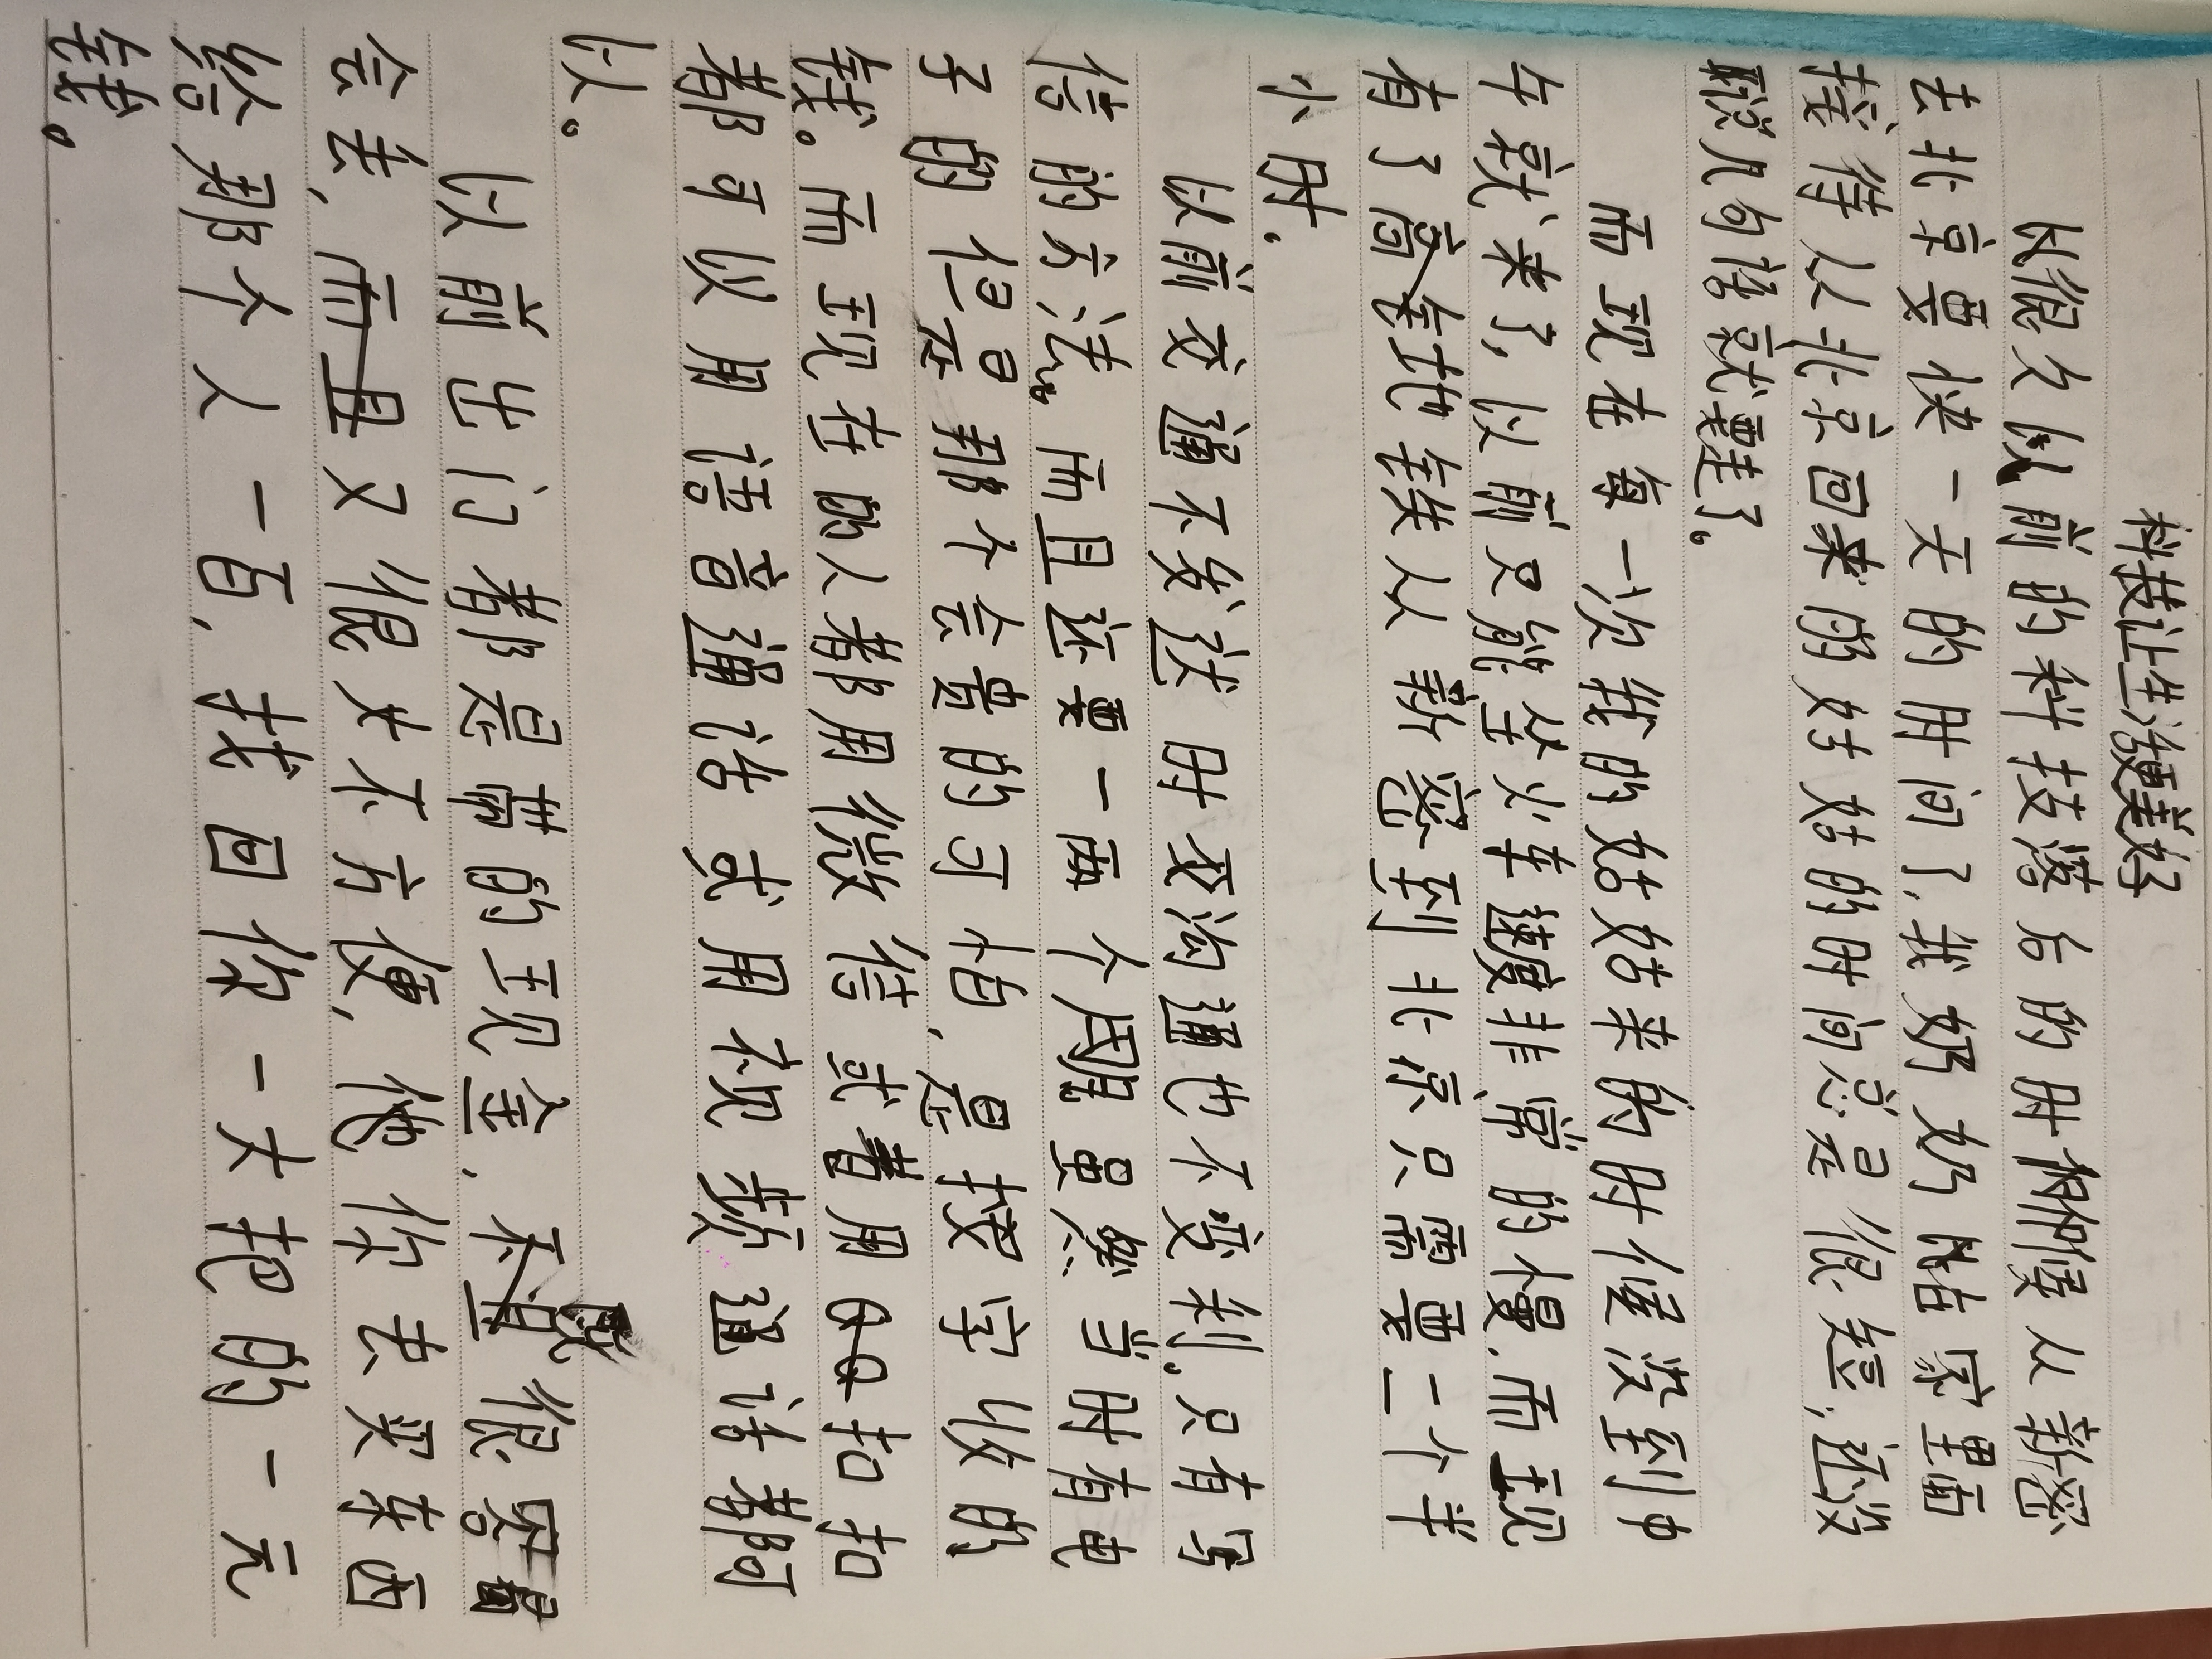 科技让生活更美好
以很久以前的科技落后的时候从新密
去北京要快一天的时间了，我奶奶站家里面
接待从北京回来的姑姑的时间总是很短，还没
聊几句话就要走了。
而现在每一次我的姑姑来的时候没到中
午就来了，以前只能坐火车速度非常的慢，而现
有了高铁从新密到北京只需要一个半
小时。
以前交通不发达时交沟通也不变利，只有写
信的方法，而且还要一两个周虽然当时有电
子的但是那个会贵的可怕，是按字收的
钱。而现在的人都用微信或者用QQ扣扣
都可以用语音通话或用视频通话都可
以。
以前出门都是带的现金，不但很容易
会丢，而且又很大不方便，他你去买东西
给那个人一百，找回你一大把的一元
钱。